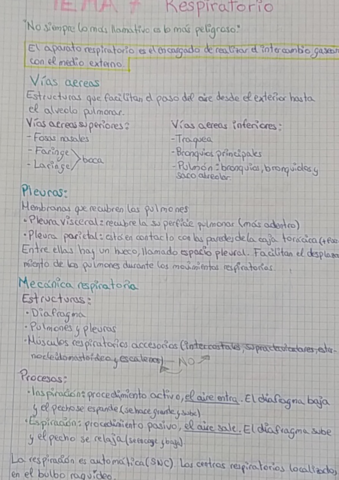 TEMA 7 Respiratorio
"No siempre lo más llamativo es lo más peligroso."
El aparato respiratorio es el encargado de realizar el intercambio gaseoso
con el medio externo.
Vías aereas
Estructuras que facilitan el paso del aire desde el exterior hasta
el alveolo pulmonar.
Vías aereas superiores: Vías aereas inferiores:
- Fosas nasales - Traquea
- Faringe - Bronquios principales
- Laringe boca - Pulmón: bronquios, bronquiolos y
saco alveolar
Pleuras:
Membranas que recubren los pulmones
• Pleura visceral: recubre la superficie pulmonar (más adentro)
• Pleura parietal: está en contacto con las paredes de la caja torácica
Entre ellas hay un hueco, llamado espacio pleural. Facilitan el desplaza
miento de los pulmones durante los movimientos respiratorios
Mecánica respiratoria
Estructuras:
• Diafragma
• Pulmones y pleuras
• Músculos respiratorios accesorios (intercostales,
y escalenos) NO
Procesos:
• Inspiración: procedimiento activo, el aire entra. El diafragma baja
y el pecho se expande (se hace grande y sube)
• Espiración: procedimiento pasivo, el aire sale. El diafragma sube
y el pecho se relaja (se encoge y baja)
La respiración es automática (SNC). Los centros respiratorios localizados
en el bulbo raquídeo.